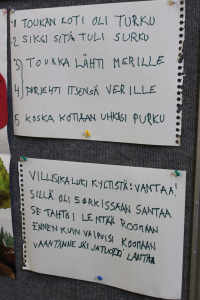 1 TOUKAN KOTI OLI TURKU
2 SIKSI SITÄ TULI SURKU
3) TOUKKA LÄHTI MERILLE
4) PURJEHTI ITSENSÄ VERILLE
5 KOSKA KOTIAAN UHKASI PURKU
VILLISIKA LUKI KYLTISTÄ: VANTAA!
SILLÄ OLI SORKISSAAN SANTAA
SE TAHTOI LENTÄÄ ROOMAAN
ENNEN KUIN VAIPUISI KOOMAAN
VAAN TÄNNE JÄI